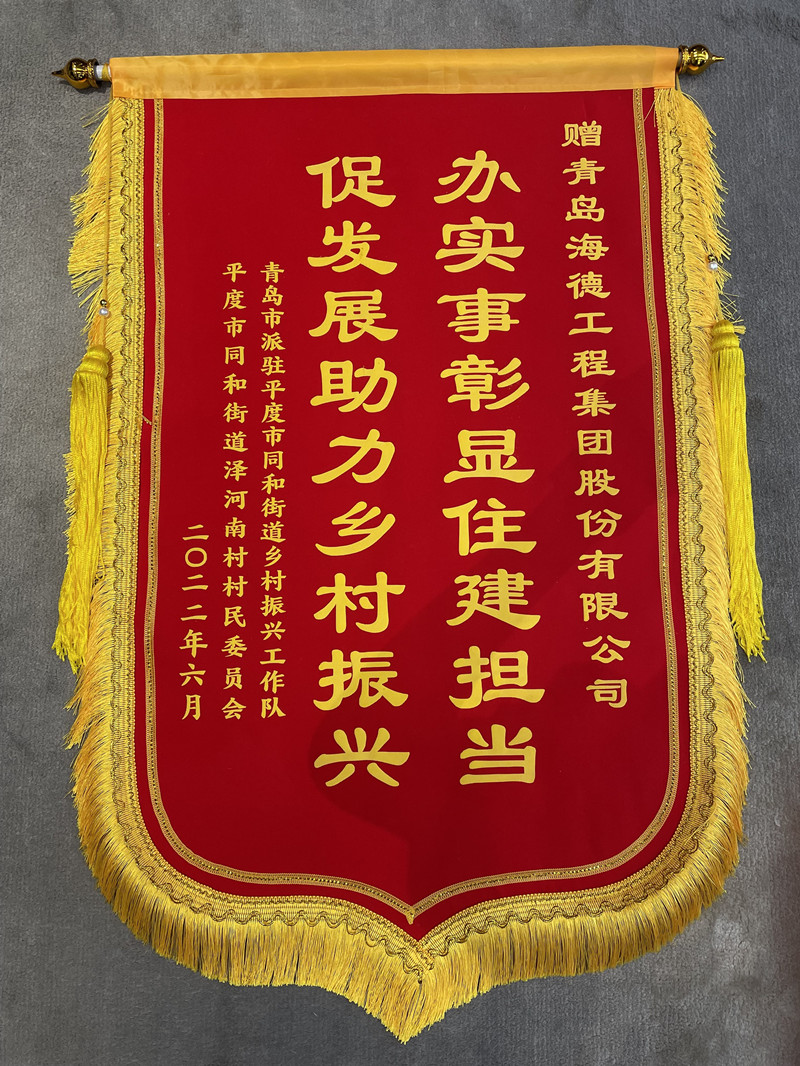 赠青岛海德工程集团股份有限公司
办实事彰显住建担当
促发展助力乡村振兴
青岛市派驻平度市同和街道乡村振兴工作队
平度市同和街道泽河南村村民委员会
二〇二二年六月